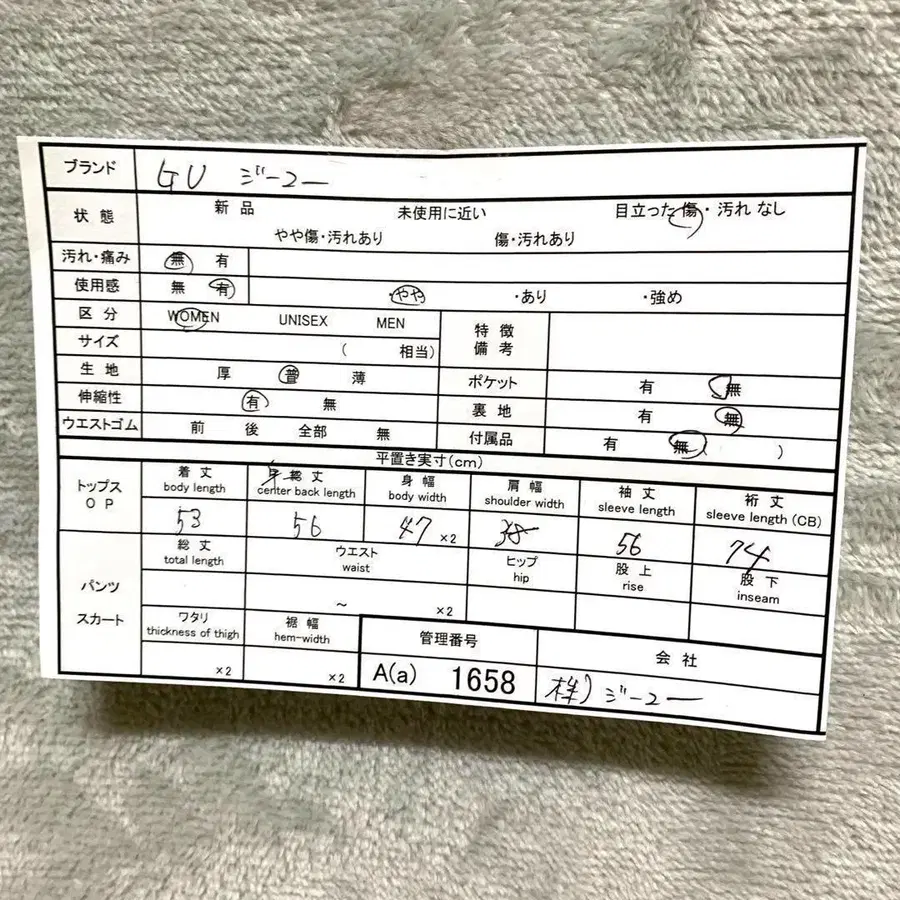 ブランド GU ジーユー
状態 新品 未使用に近い 目立った傷・汚れなし
やや傷・汚れあり 傷・汚れあり
汚れ・痛み 無 有
使用感 無 有 ・やや ・あり ・強め
区分 WOMEN UNISEX MEN
サイズ ( 相当)
特徴
備考
生地 厚 普 薄
ポケット 有 無
伸縮性 有 無
裏地 有 無
ウエストゴム 前 後 全部 無
付属品 有 無 ( )
平置き実寸(cm)
トップス
OP
着丈 総丈 身幅 肩幅 袖丈 裄丈
body length center back length body width shoulder width sleeve length sleeve length (CB)
53 56 47 ×2 38 56 74
パンツ
スカート
総丈 ウエスト ヒップ 股上 股下
total length waist hip rise inseam
~ ×2
ワタリ 裾幅
thickness of thigh hem-width
×2 ×2
管理番号 会社
A(a) 1658 株)ジーユー